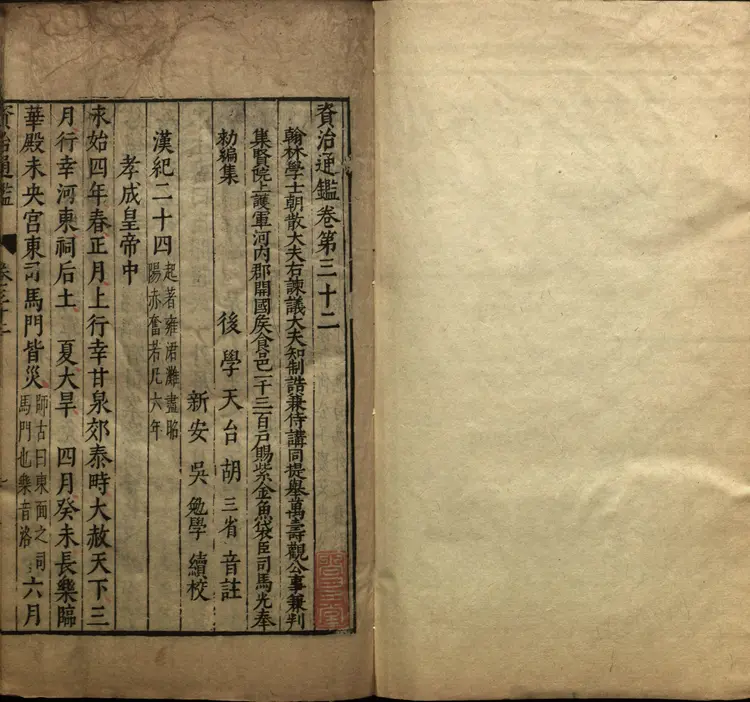 資治通鑑卷第三十二
翰林學士朝散大夫右諫議大夫知制誥兼侍講同提舉萬壽觀公事兼判
集賢院上護軍河內郡開國矦食邑一千三百戶賜紫金魚袋臣司馬光奉
勑編集 後學天台胡三省音註
新安吳勉學續校
漢紀二十四 起著雍涒灘盡昭陽赤奮若凡六年
孝成皇帝中
永始四年春正月上行幸甘泉郊泰時大赦天下三
月行幸河東祠后土 夏大旱 四月癸未長樂臨
華殿未央宮東司馬門皆災 師古曰東面之司馬門也樂音洛 六月
資治通鑑 卷三十二